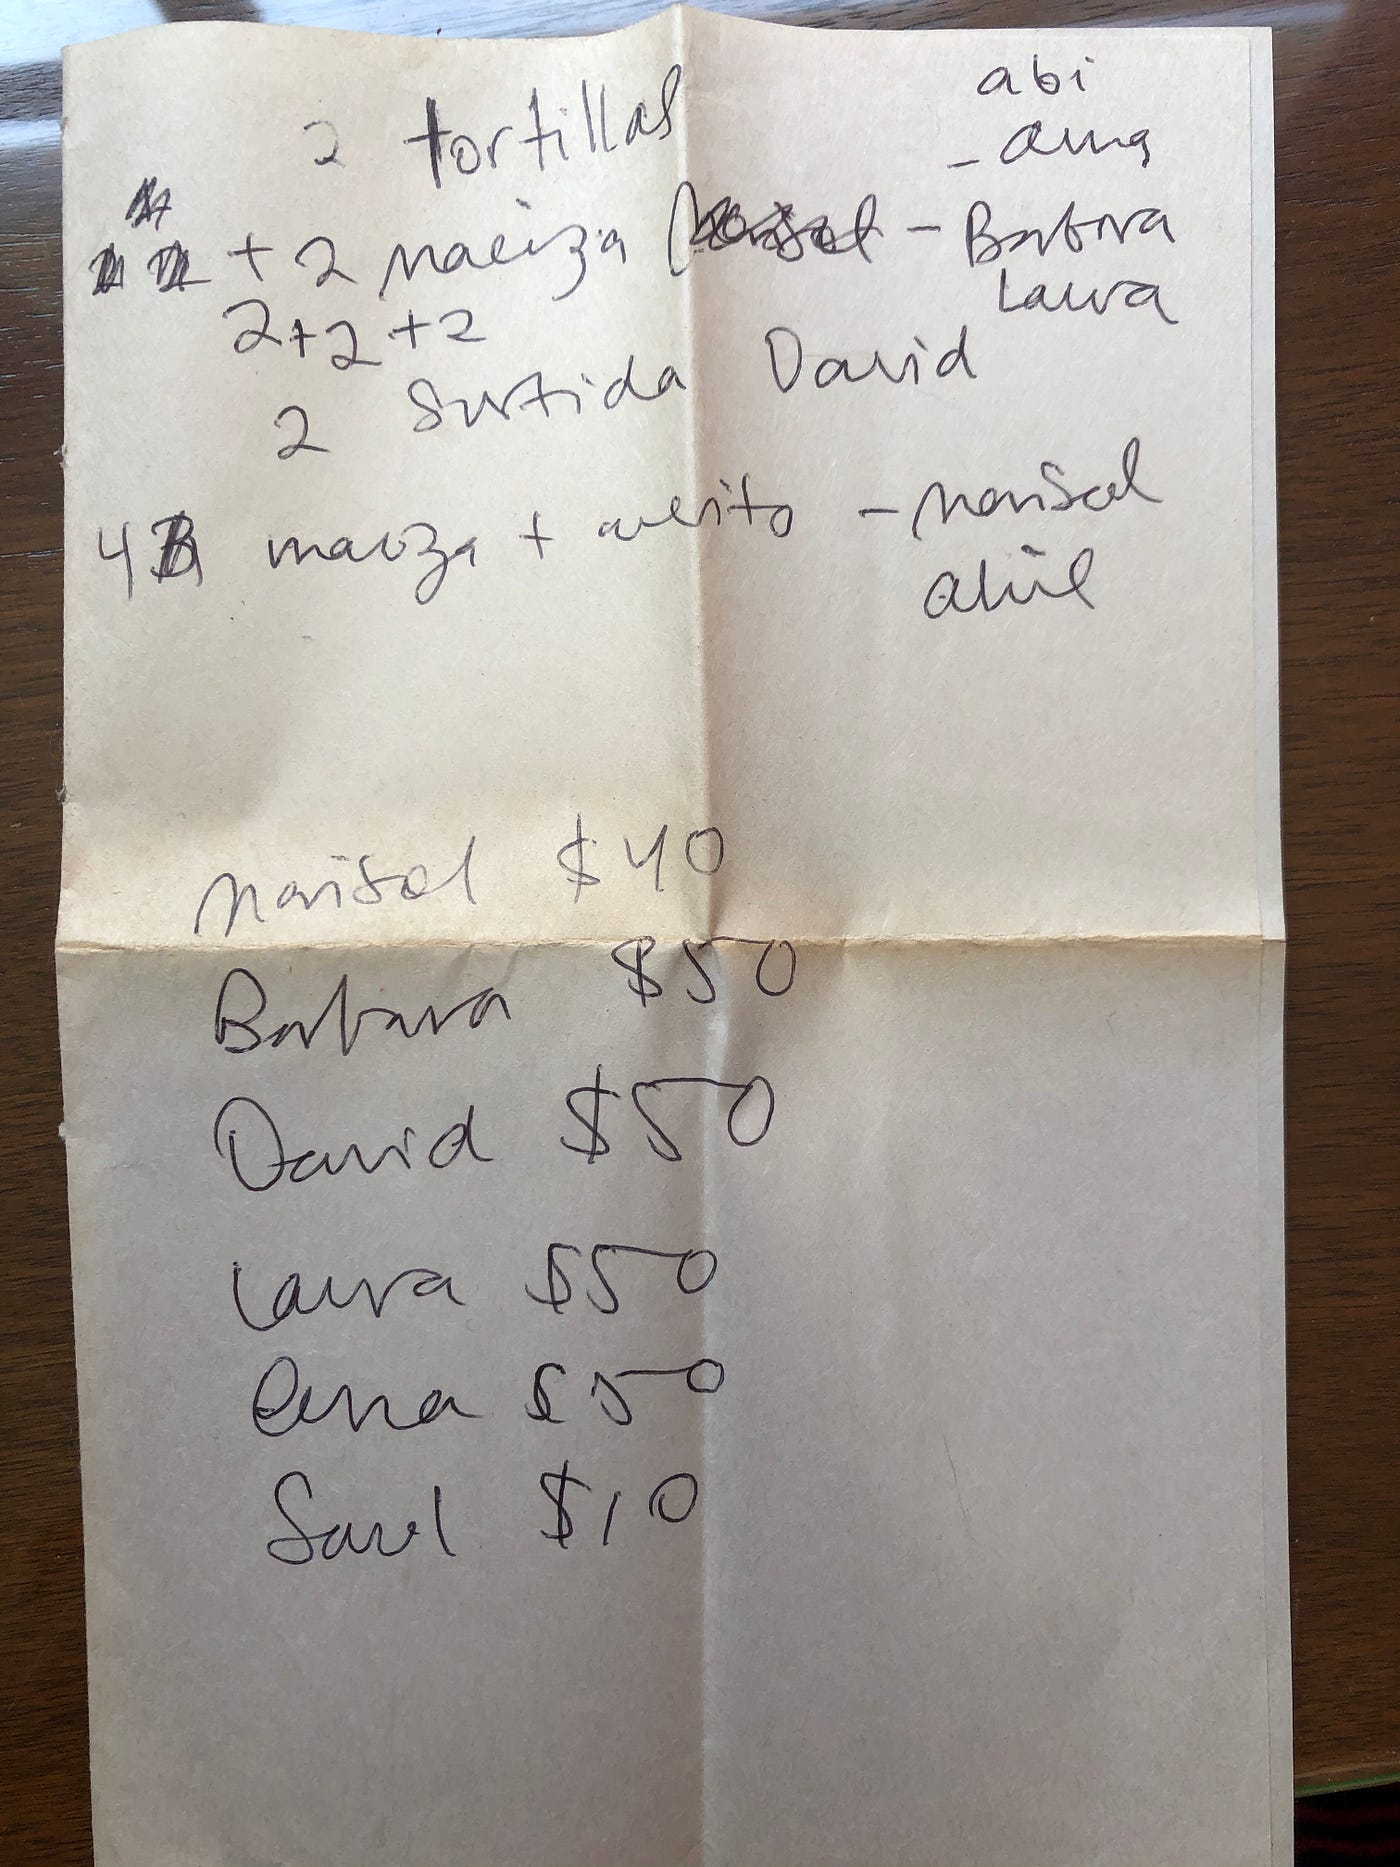 abi
2 tortillas
- anna
+ 2 maciza - Barbara
Laura
2+2+2
2 Surtida David
4 maciza + cuerito - marisol
marisol $40
Barbara $50
David $50
Laura $50
$50
Saul $10